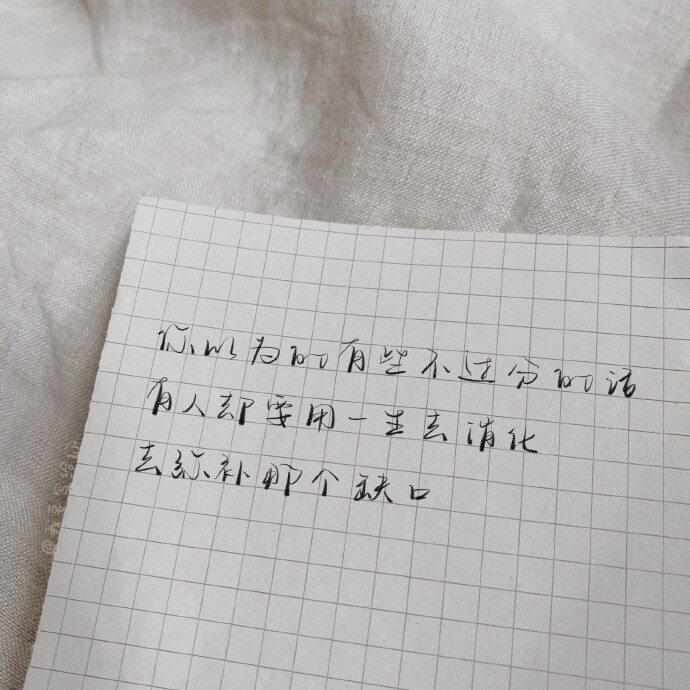 你以为的有些不过分的话
有人却要用一生去消化
去弥补那个缺口